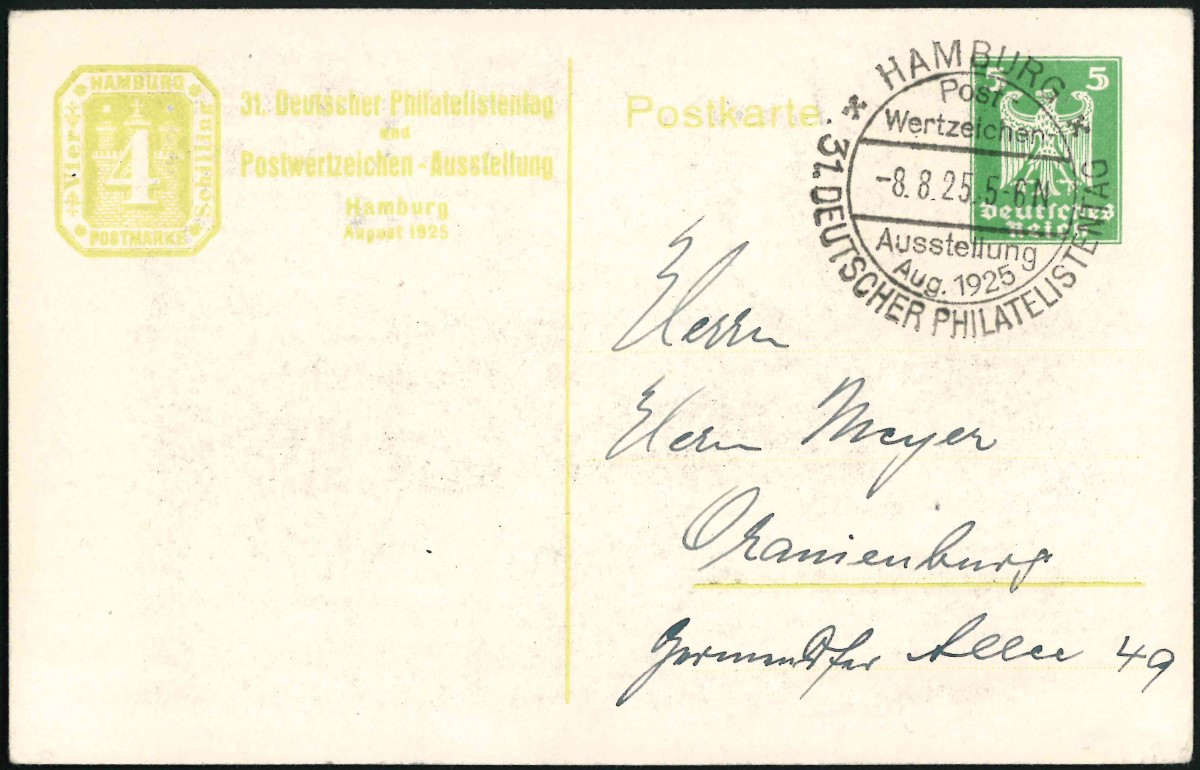 HAMBURG
Vier
4
Schilling
POSTMARKE
31. Deutscher Philatelistentag
und
Postwertzeichen-Ausstellung
Hamburg
August 1925
Postkarte
5 5
Deutsches
Reich
HAMBURG
Post
Wertzeichen-
-8.8.25.5-6N
Ausstellung
Aug. 1925
31. DEUTSCHER PHILATELISTENTAG
Herrn
Herm Meyer
Oranienburg
Allee 49